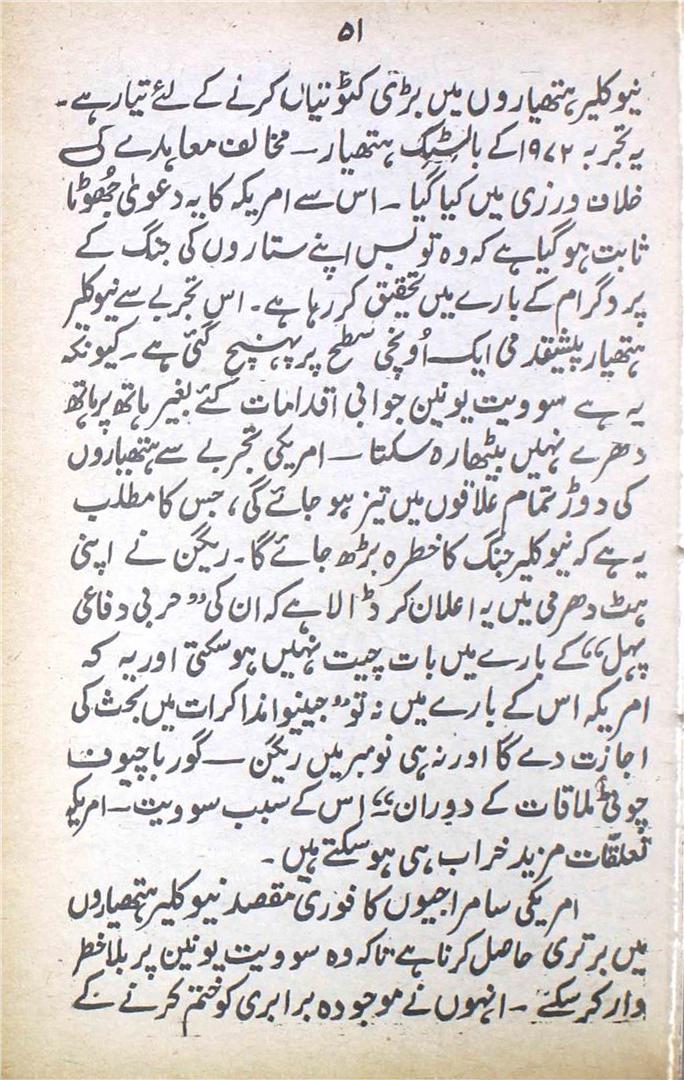 ۵۱
نیوکلیر ہتھیاروں میں بڑی کٹوتیاں کرنے کے لئے تیار ہے۔
یہ تجربہ ۱۹۷۲ کے بالسٹک ہتھیار – مخالف معاہدے کی
خلاف ورزی میں کیا گیا ۔ اس سے امریکہ کا یہ دعویٰ جھوٹا
ثابت ہو گیا ہے کہ وہ تو بس اپنے ستاروں کی جنگ کے
پروگرام کے بارے میں تحقیق کر رہا ہے۔ اس تجربے سے نیوکلیر
ہتھیار پیشقدمی ایک اُونچی سطح پر پہنچ گئی ہے ۔ کیونکہ
یہ ہے سوویت یونین جوابی اقدامات کئے بغیر ہاتھ پر ہاتھ
دھرے نہیں بیٹھا رہ سکتا – امریکی تجربے سے ہتھیاروں
کی دوڑ تمام علاقوں میں تیز ہو جائے گی، جس کا مطلب
یہ ہے کہ نیوکلیر جنگ کا خطرہ بڑھ جائے گا۔ ریگن نے اپنی
ہٹ دھرمی میں یہ اعلان کر ڈالا ہے کہ ان کی ”حربی دفاعی
پہل“ کے بارے میں بات چیت نہیں ہو سکتی اور یہ کہ
امریکہ اس کے بارے میں نہ تو ”جینیوا مذاکرات میں بحث کی
اجازت دے گا اور نہ ہی نومبر میں ریگن – گورباچیوف
چوٹی ملاقات کے دوران“ اس کے سبب سوویت – امریکہ
تعلقات مزید خراب ہی ہو سکتے ہیں ۔
امریکی سامراجیوں کا فوری مقصد نیوکلیر ہتھیاروں
میں برتری حاصل کرنا ہے تاکہ وہ سوویت یونین پر بلا خطر
وار کر سکے ۔ انہوں نے موجودہ برابری کو ختم کرنے کے